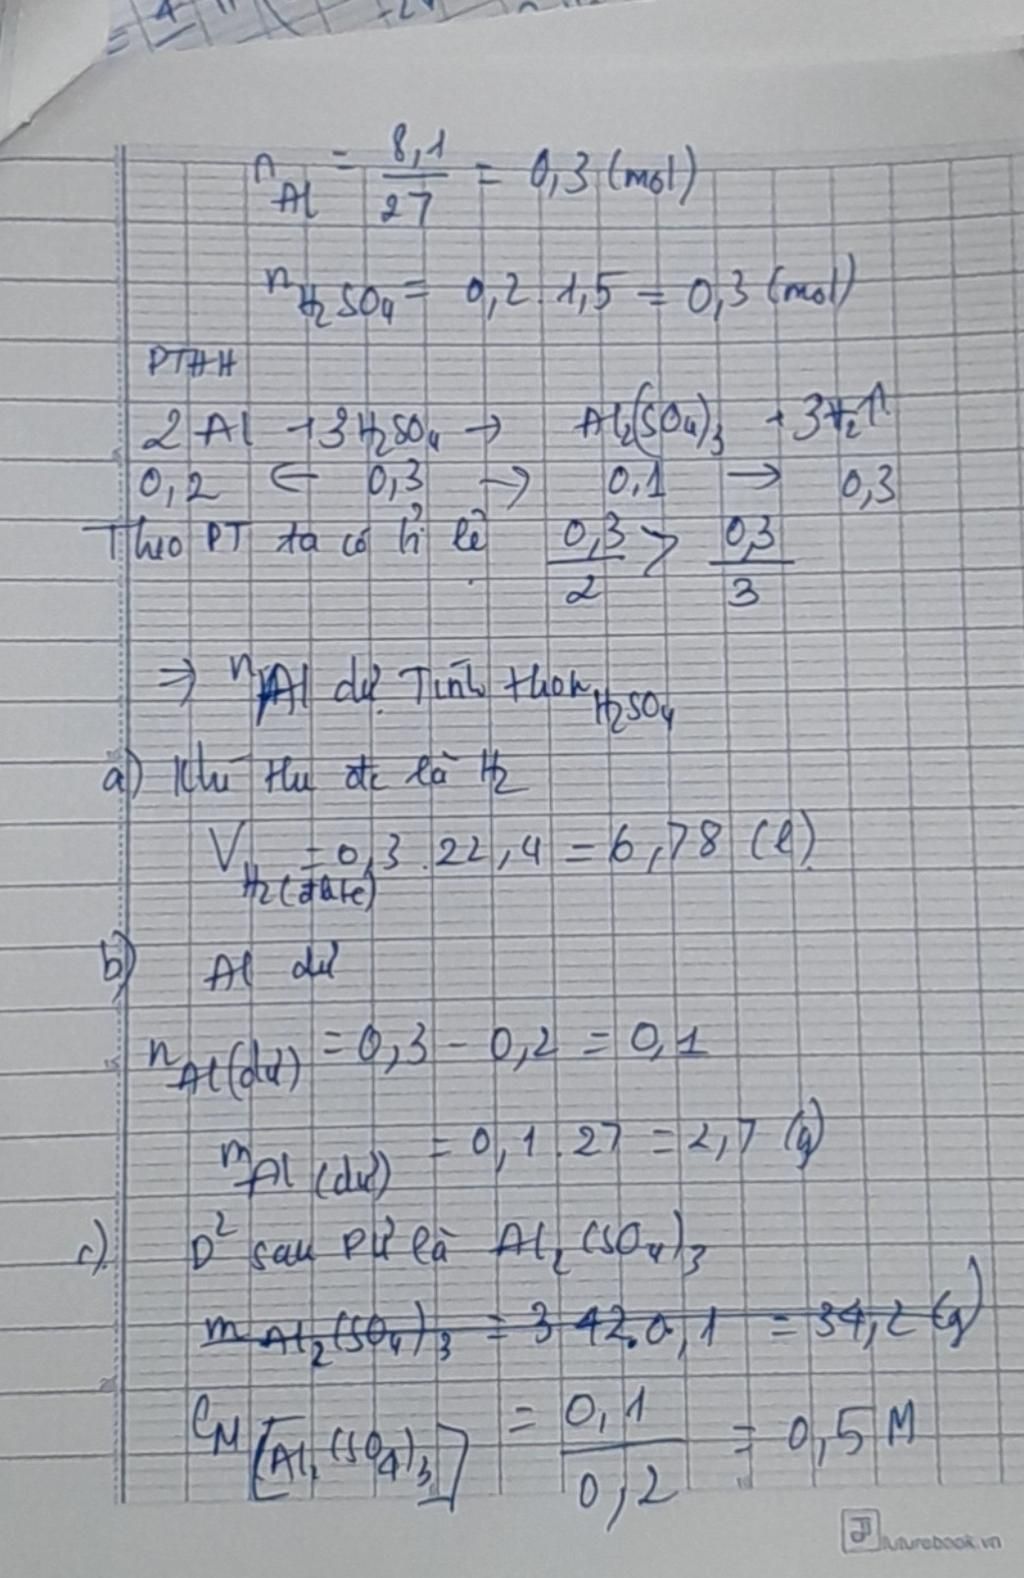 n Al = 8,1 / 27 = 0,3 (mol)
n H2SO4 = 0,2 . 1,5 = 0,3 (mol)
PTHH
2 Al + 3H2SO4 → Al2(SO4)3 + 3H2↑
0,2 ← 0,3 → 0,1 → 0,3
Theo PT ta có tỉ lệ 0,3 / 2 > 0,3 / 3
⇒ n Al dư Tính theo n H2SO4
a) Khí thu đc là H2
V H2 (đktc) = 0,3 . 22,4 = 6,78 (l)
b) Al dư
n Al(dư) = 0,3 - 0,2 = 0,1
m Al (dư) = 0,1 . 27 = 2,7 (g)
c) D² sau PƯ là Al2(SO4)3
m Al2(SO4)3 = 342.0,1 = 34,2 (g)
CM [Al2(SO4)3] = 0,1 / 0,2 = 0,5 M
futurebook.vn